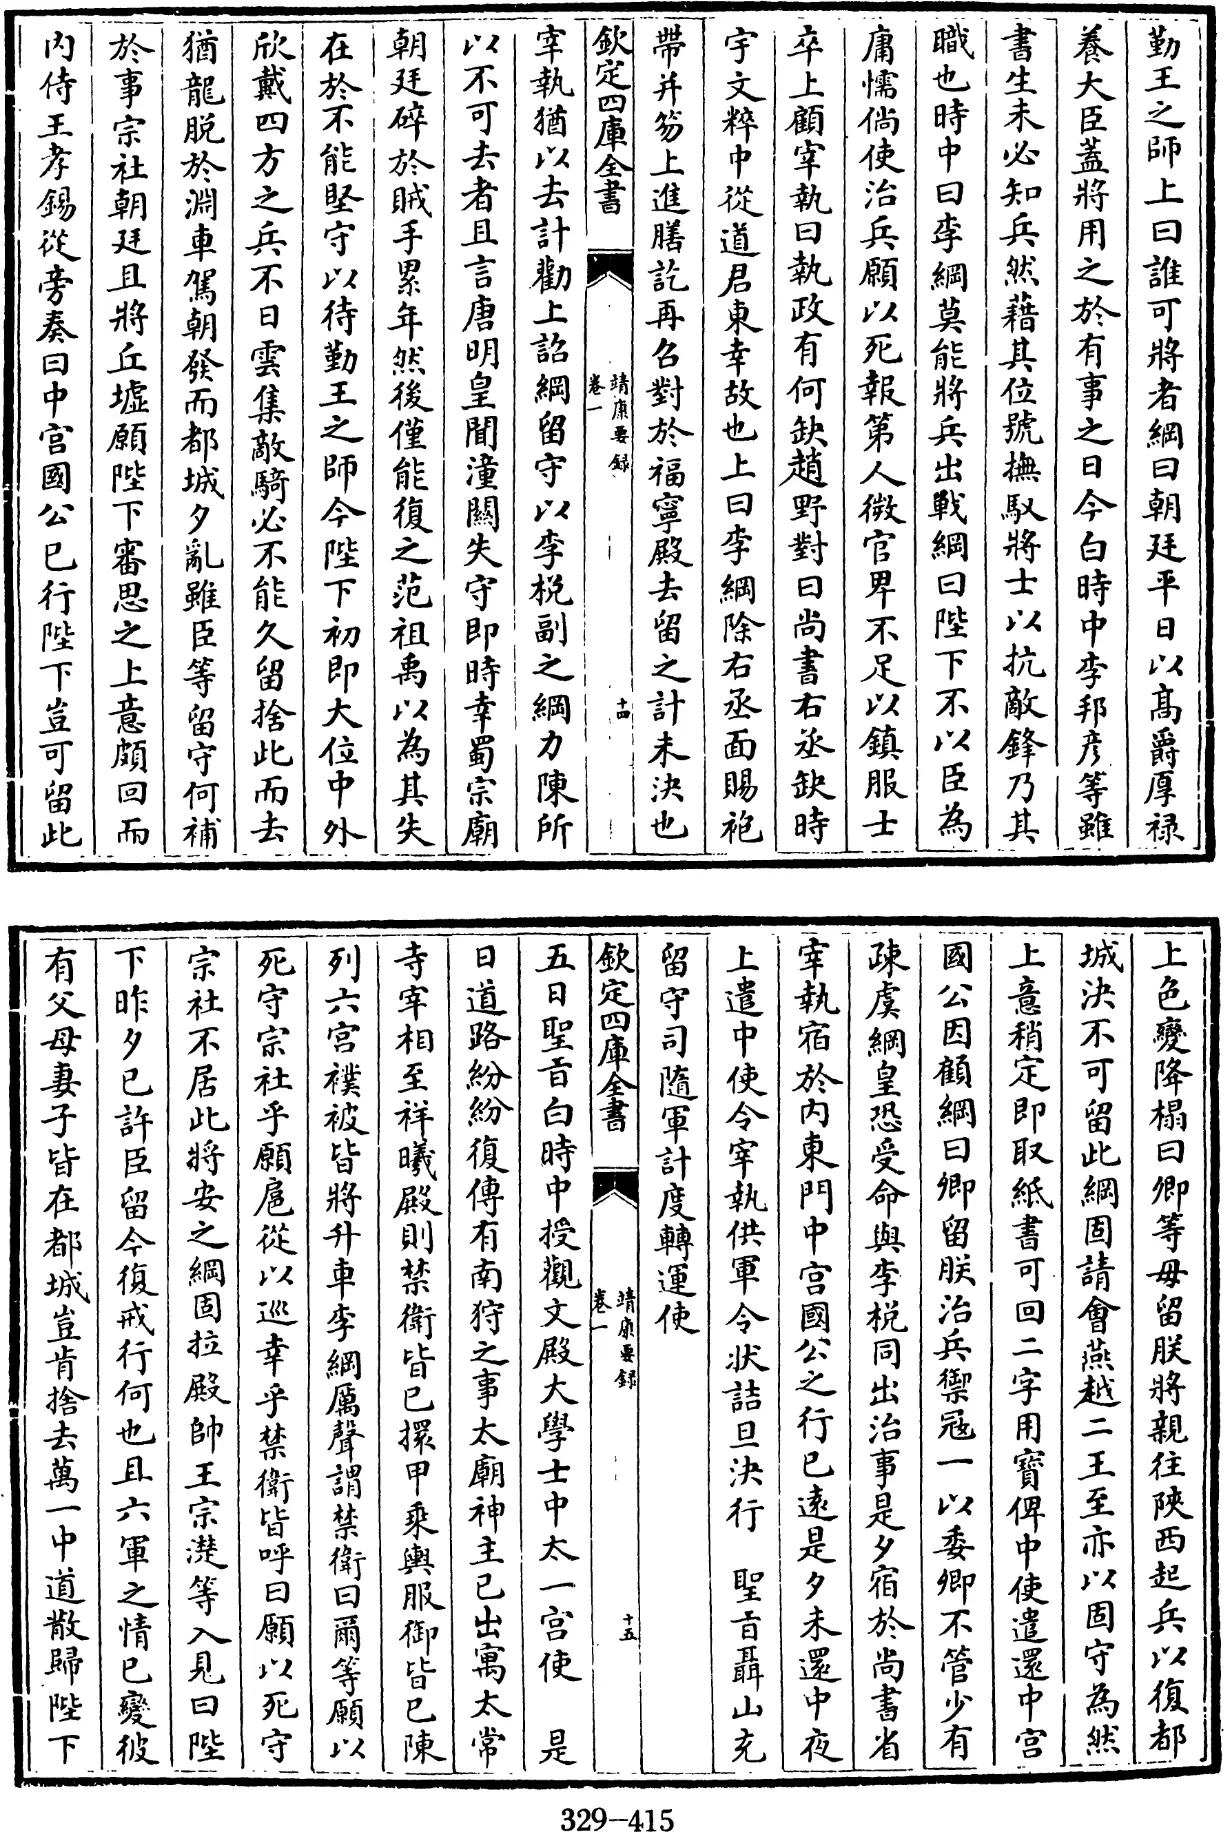 勤王之師上曰誰可將者綱曰朝廷平日以髙爵厚禄
養大臣蓋將用之於有事之日今白時中李邦彦等雖
書生未必知兵然藉其位號撫馭將士以抗敵鋒乃其
職也時中曰李綱莫能將兵出戰綱曰陛下不以臣為
庸懦倘使治兵願以死報第人微官卑不足以鎮服士
卒上顧宰執曰執政有何缺趙野對曰尚書右丞缺時
宇文粹中從道君東幸故也上曰李綱除右丞面賜袍
帶并笏上進膳訖再召對於福寧殿去留之計未決也
欽定四庫全書
靖康要録
卷一
十四
宰執猶以去計勸上詔綱留守以李梲副之綱力陳所
以不可去者且言唐明皇聞潼關失守即時幸蜀宗廟
朝廷碎於賊手累年然後僅能復之范祖禹以為其失
在於不能堅守以待勤王之師今陛下初即大位中外
欣戴四方之兵不日雲集敵騎必不能久留捨此而去
猶龍脱於淵車駕朝發而都城夕亂雖臣等留守何補
於事宗社朝廷且將丘墟願陛下審思之上意頗回而
内侍王孝錫從旁奏曰中宫國公已行陛下豈可留此
上色變降榻曰卿等毋留朕將親往陜西起兵以復都
城決不可留此綱固請會燕越二王至亦以固守為然
上意稍定即取紙書可回二字用寶俾中使遣還中宫
國公因顧綱曰卿留朕治兵禦冦一以委卿不管少有
疎虞綱皇恐受命與李梲同出治事是夕宿於尚書省
宰執宿於内東門中宫國公之行已遠是夕未還中夜
上遣中使令宰執供軍令狀詰旦決行　聖旨聶山充
留守司隨軍計度轉運使
欽定四庫全書
靖康要録
卷一
十五
五日聖旨白時中授觀文殿大學士中太一宫使　是
日道路紛紛復傳有南狩之事太廟神主已出寓太常
寺宰相至祥曦殿則禁衛皆已擐甲乘輿服御皆已陳
列六宫襆被皆將升車李綱厲聲謂禁衛曰爾等願以
死守宗社乎願扈從以巡幸乎禁衛皆呼曰願以死守
宗社不居此將安之綱固拉殿帥王宗濋等入見曰陛
下昨夕已許臣留今復戒行何也且六軍之情已變彼
有父母妻子皆在都城豈肯捨去萬一中道散歸陛下
329-415